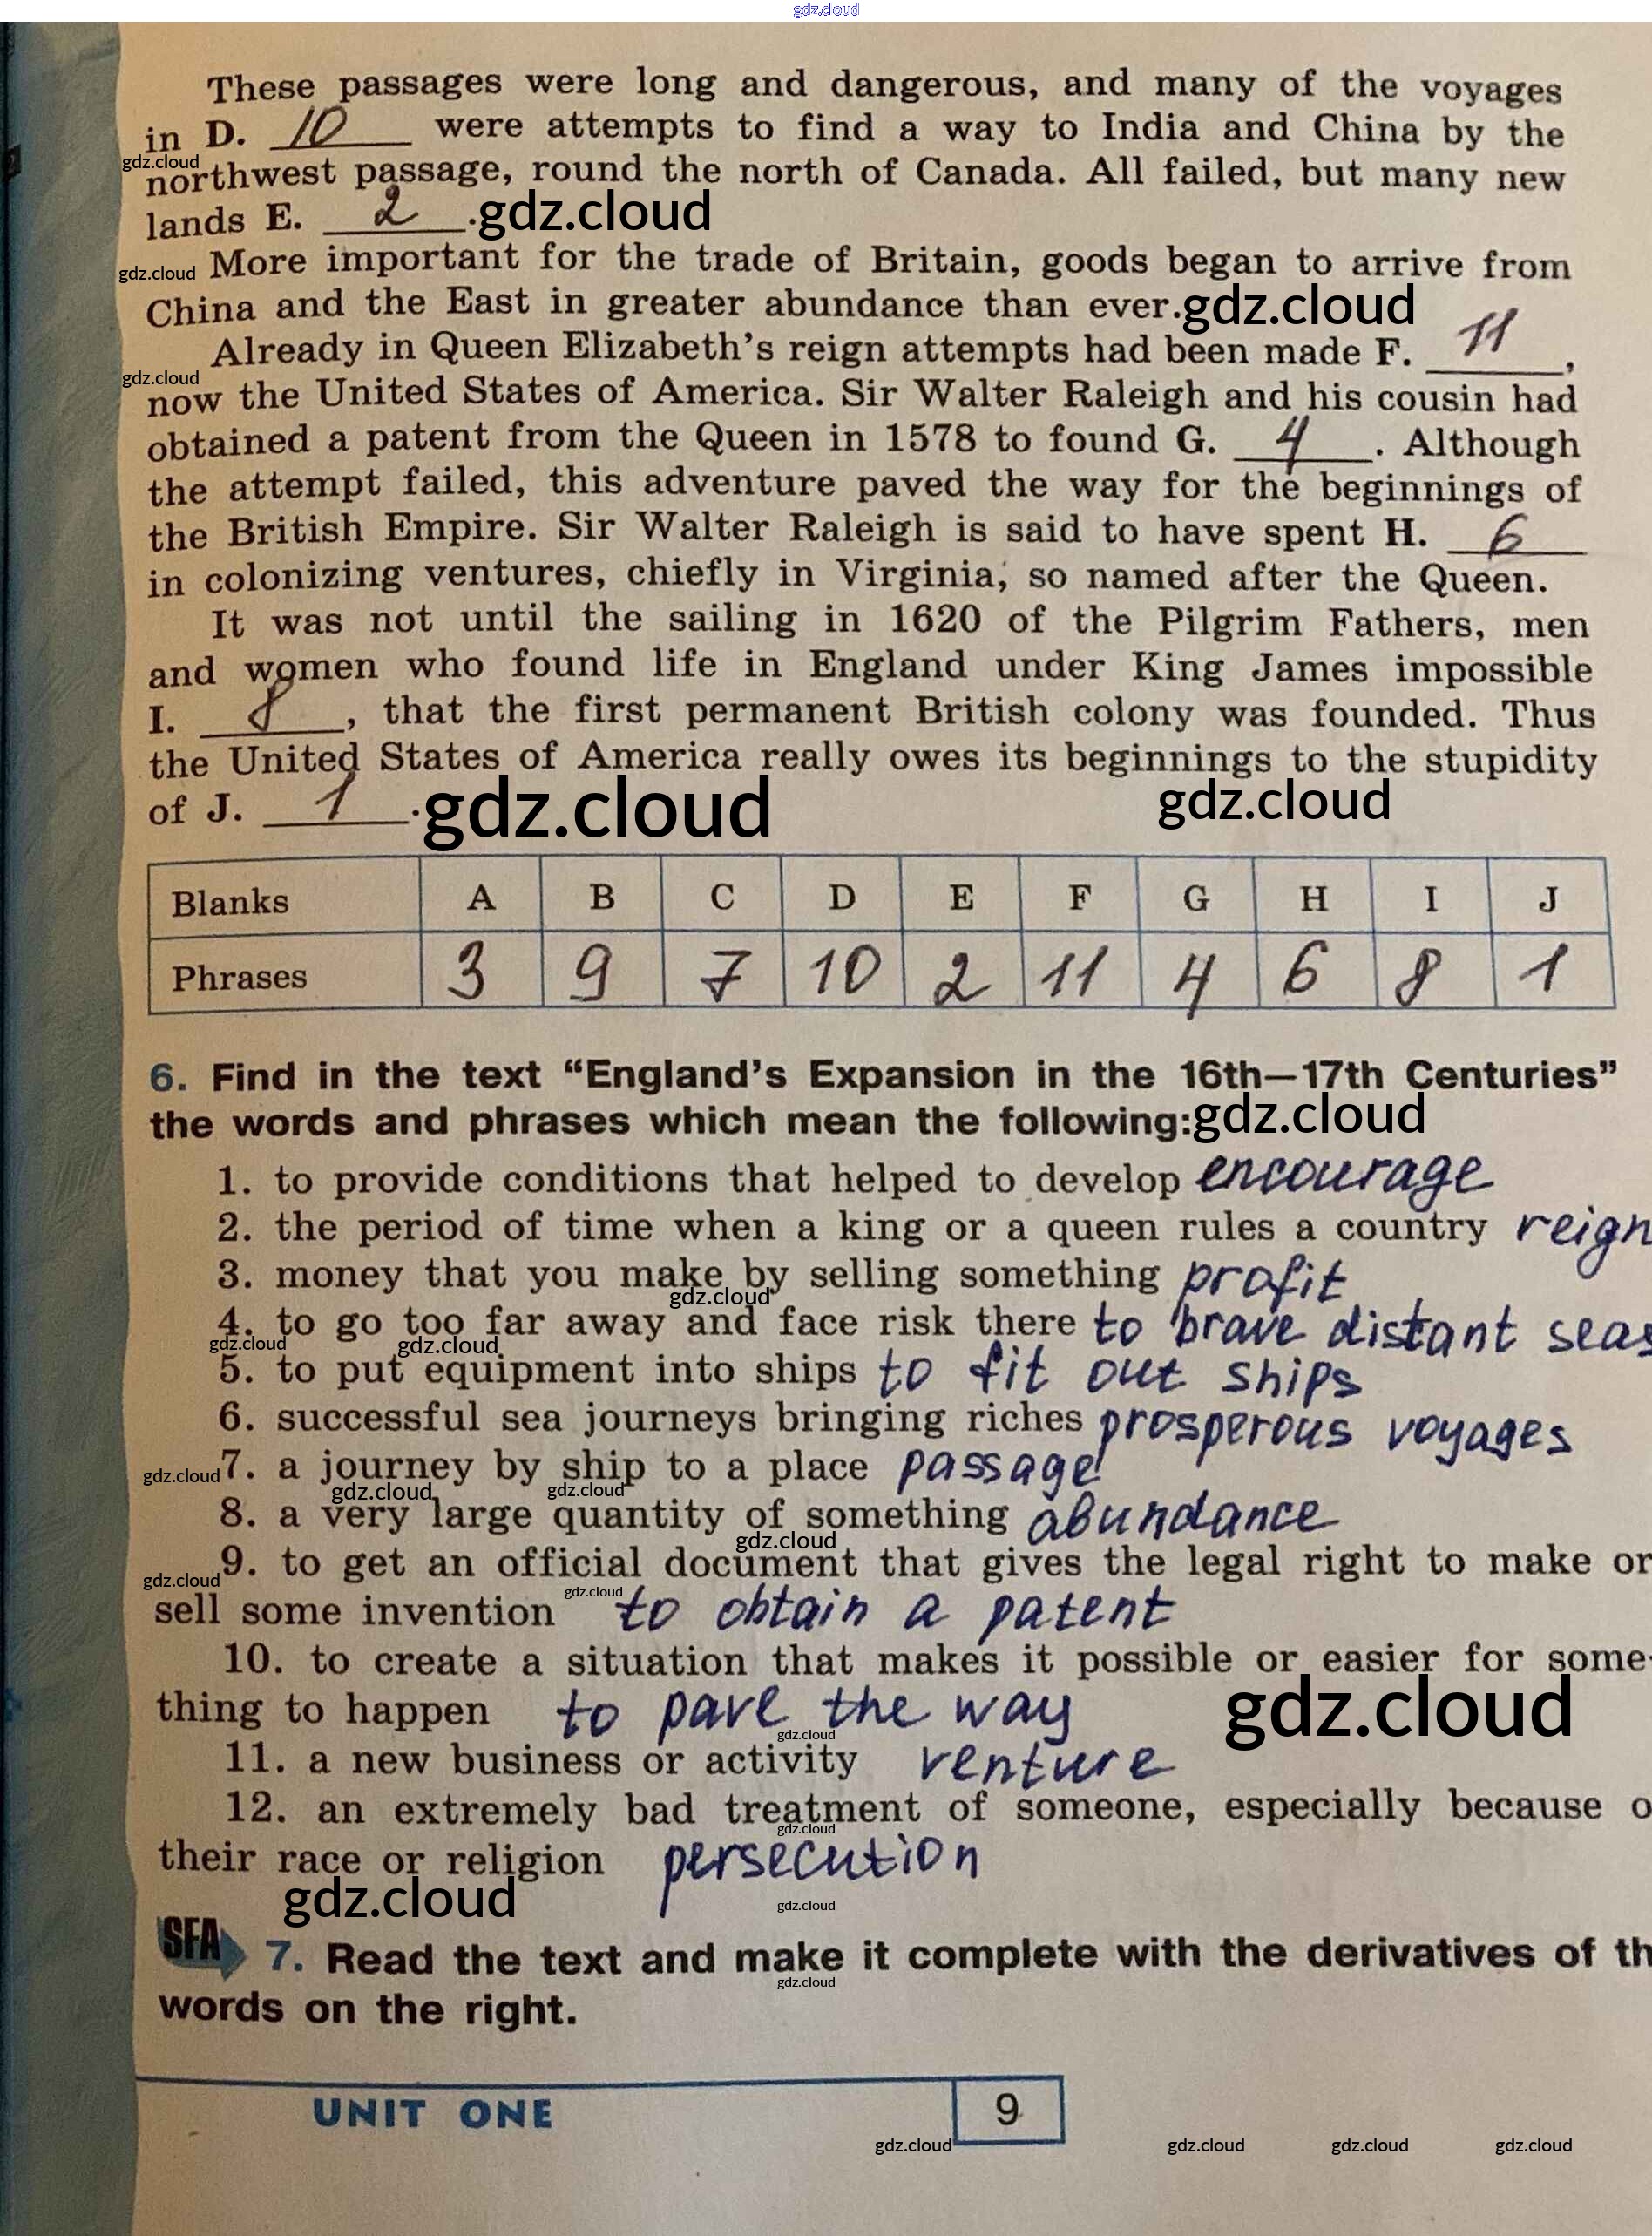 gdz.cloud
These passages were long and dangerous, and many of the voyages
in D. 10 were attempts to find a way to India and China by the
gdz.cloud
northwest passage, round the north of Canada. All failed, but many new
lands E. 2 . gdz.cloud
gdz.cloud More important for the trade of Britain, goods began to arrive from
China and the East in greater abundance than ever. gdz.cloud
Already in Queen Elizabeth's reign attempts had been made F. 11 ,
gdz.cloud
now the United States of America. Sir Walter Raleigh and his cousin had
obtained a patent from the Queen in 1578 to found G. 4 . Although
the attempt failed, this adventure paved the way for the beginnings of
the British Empire. Sir Walter Raleigh is said to have spent H. 6
in colonizing ventures, chiefly in Virginia, so named after the Queen.
It was not until the sailing in 1620 of the Pilgrim Fathers, men
and women who found life in England under King James impossible
I. 8 , that the first permanent British colony was founded. Thus
the United States of America really owes its beginnings to the stupidity
of J. 1 . gdz.cloud gdz.cloud
Blanks A B C D E F G H I J
Phrases 3 9 7 10 2 11 4 6 8 1
6. Find in the text “England's Expansion in the 16th—17th Centuries”
the words and phrases which mean the following: gdz.cloud
1. to provide conditions that helped to develop encourage
2. the period of time when a king or a queen rules a country reign
3. money that you make by selling something profit
gdz.cloud
4. to go too far away and face risk there to brave distant seas
gdz.cloud gdz.cloud
5. to put equipment into ships to fit out ships
6. successful sea journeys bringing riches prosperous voyages
gdz.cloud 7. a journey by ship to a place passage
gdz.cloud gdz.cloud
8. a very large quantity of something abundance
gdz.cloud
9. to get an official document that gives the legal right to make or
gdz.cloud gdz.cloud
sell some invention to obtain a patent
10. to create a situation that makes it possible or easier for some-
thing to happen to pave the way gdz.cloud
gdz.cloud
11. a new business or activity venture
12. an extremely bad treatment of someone, especially because o
gdz.cloud
their race or religion persecution
gdz.cloud gdz.cloud
SFA 7. Read the text and make it complete with the derivatives of th
gdz.cloud
words on the right.
UNIT ONE 9
gdz.cloud gdz.cloud gdz.cloud gdz.cloud